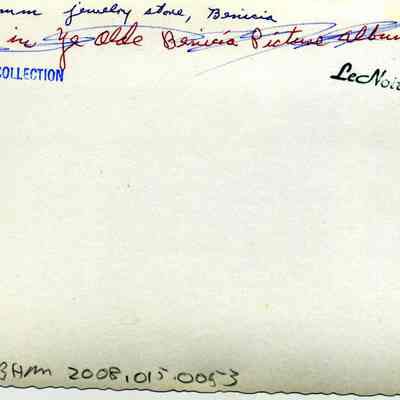 jewelry store, Benicia
in Ye Olde Benicia Picture album
COLLECTION
LeNoir
BHM 2008.015.0053